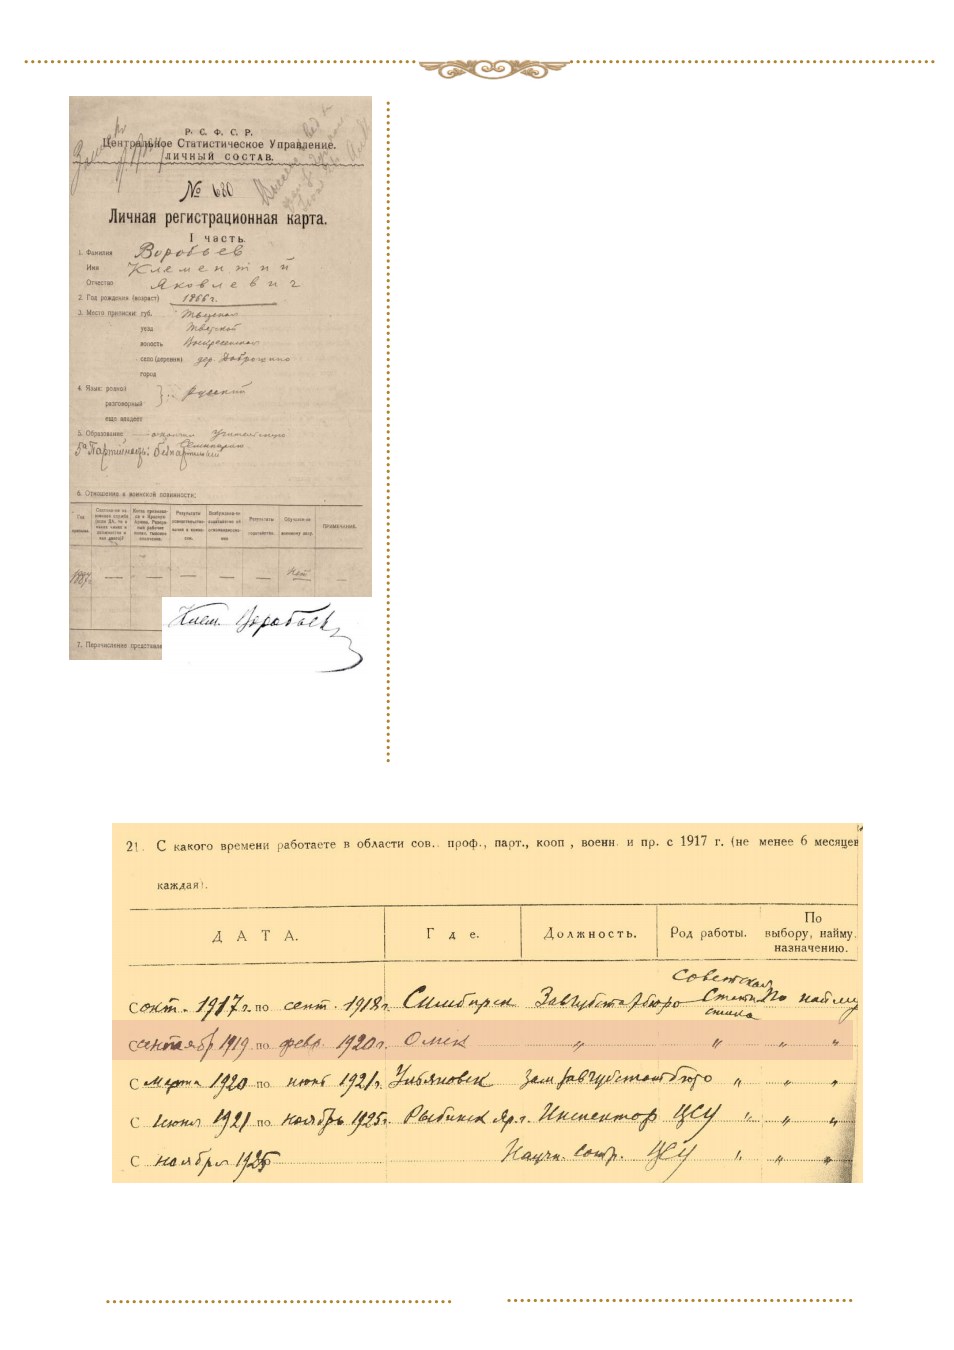 Р. С. Ф. С. Р.
Центральное Статистическое Управление.
ЛИЧНЫЙ СОСТАВ.
№ 680
Личная регистрационная карта.
I часть.
1. Фамилия Воробьев
Имя Климентий
Отчество Яковлевич
2. Год рождения (возраст) 1866 г.
3. Место приписки: губ. Тверская
уезд Тверской
волость Воскресенская
село (деревня) дер.
город
4. Язык: родной русский
разговорный
еще владеет
5. Образование окончил Учительскую
Семинарию
5а Партийность: беспартийный
6. Отношение к воинской повинности:
Год
Результаты
ПРИМЕЧАНИЯ.
1887 г. — — — — — Нет —
7. Перечисления представле
Клем. Воробьев
21. С какого времени работаете в области сов., проф., парт., кооп., военн. и пр. с 1917 г. (не менее 6 месяцев
каждая).
ДАТА. Где. Должность. Род работы. По выбору, найму, назначению.
С окт. 1917 г. по сент. 1918 г. Симбирск Завгубстатбюро Советская Статистика По найму
С сентябр 1919 по февр. 1920 г. Омск " " " "
С марта 1920 по июнь 1921 г. Ульяновск Зам завгубстатбюро " " "
С июня 1921 по ноябрь 1925 г. Рыбинск Яр. г. Инспектор ЦСУ " " "
С ноября 1925 Научн. сотр. ЦСУ " " "